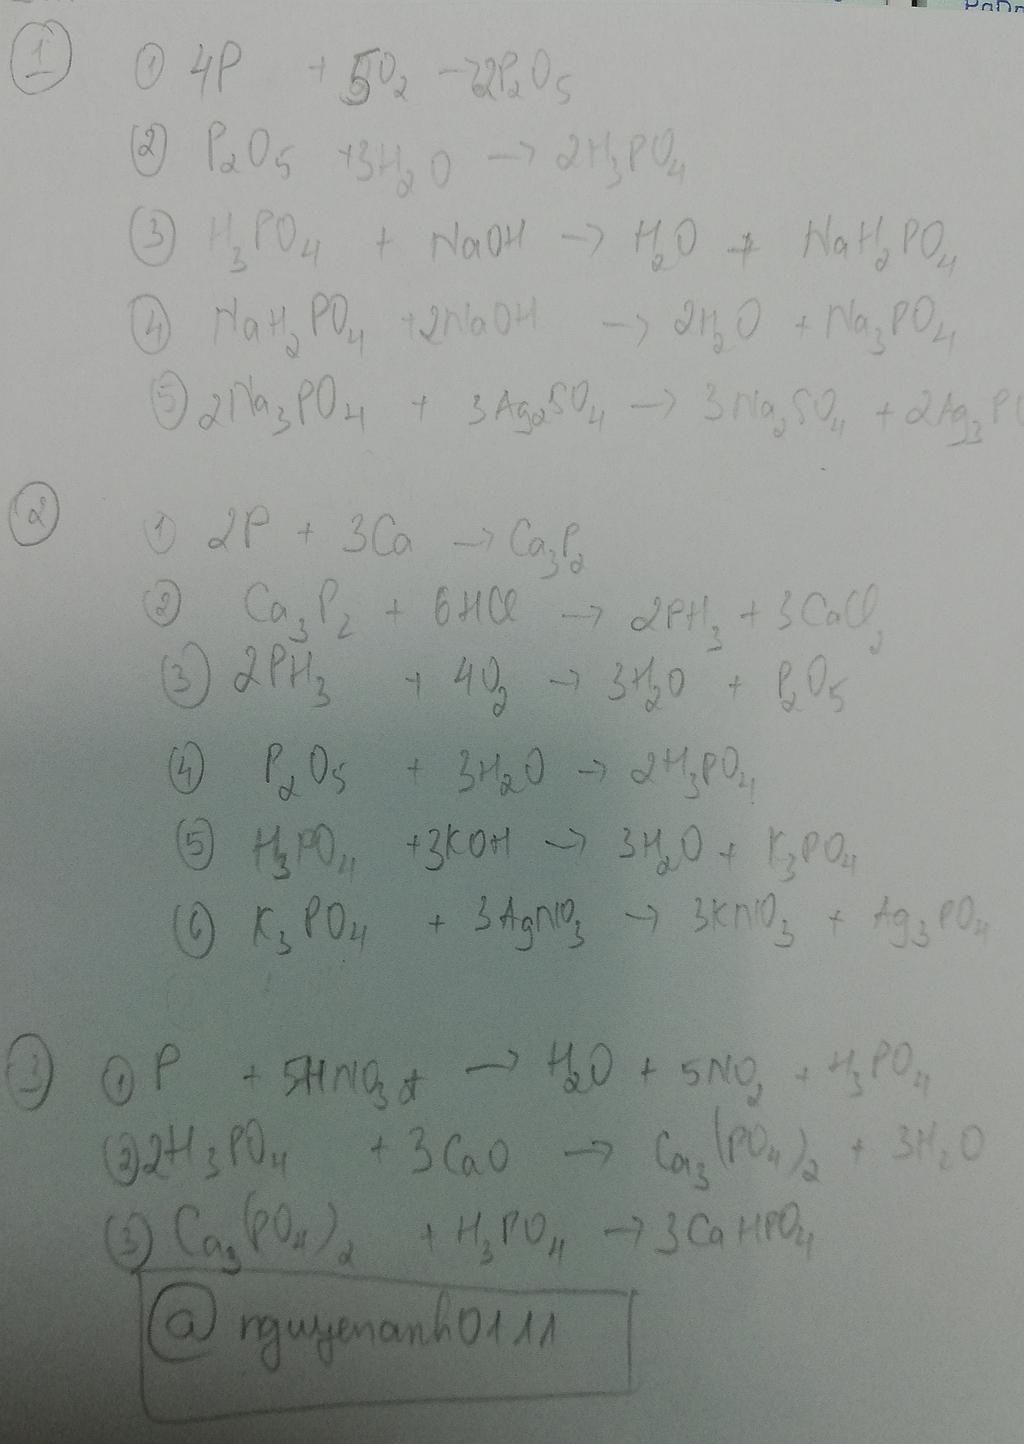 ① ① 4P + 5O₂ → 2P₂O₅
② P₂O₅ + 3H₂O → 2H₃PO₄
③ H₃PO₄ + NaOH → H₂O + NaH₂PO₄
④ NaH₂PO₄ + 2NaOH → 2H₂O + Na₃PO₄
⑤ 2Na₃PO₄ + 3Ag₂SO₄ → 3Na₂SO₄ + 2Ag₃PO
② ① 2P + 3Ca → Ca₃P₂
② Ca₃P₂ + 6HCl → 2PH₃ + 3CaCl₂
③ 2PH₃ + 4O₂ → 3H₂O + P₂O₅
④ P₂O₅ + 3H₂O → 2H₃PO₄
⑤ H₃PO₄ + 3KOH → 3H₂O + K₃PO₄
⑥ K₃PO₄ + 3AgNO₃ → 3KNO₃ + Ag₃PO₄
③ ① P + 5HNO₃ → H₂O + 5NO₂ + H₃PO₄
② 2H₃PO₄ + 3CaO → Ca₃(PO₄)₂ + 3H₂O
③ Ca₃(PO₄)₂ + H₃PO₄ → 3CaHPO₄
@nguyenanh0111